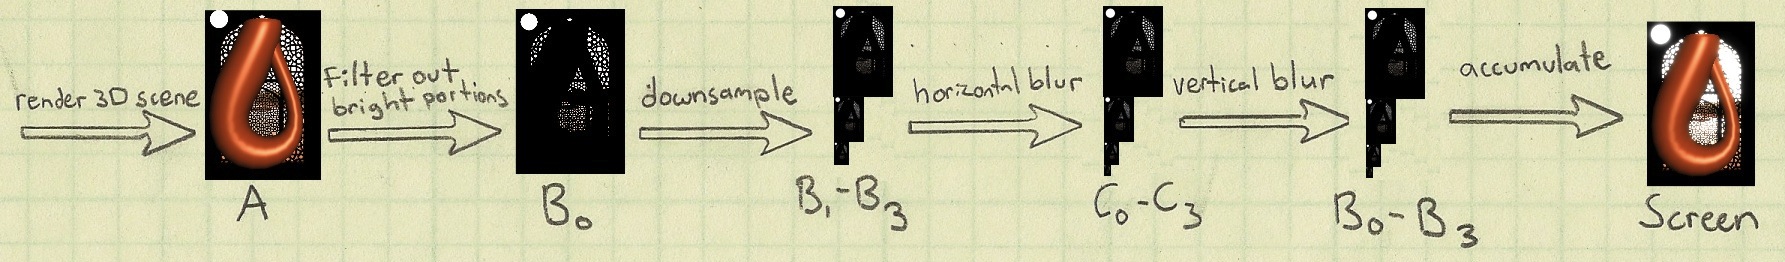 render 3D scene
A
Filter out
bright portions
B₀
downsample
B₁-B₃
horizontal blur
C₀-C₃
vertical blur
B₀-B₃
accumulate
Screen